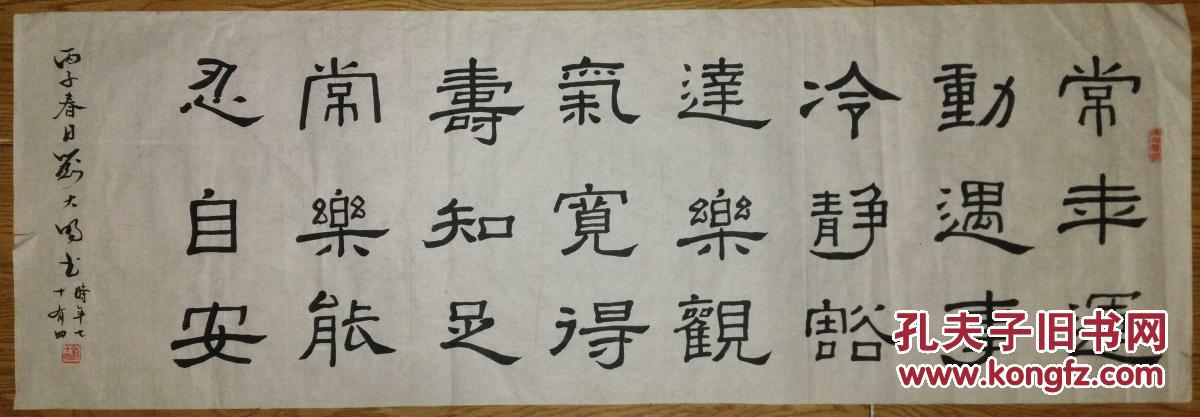 常年運
動遇事
冷靜豁
達樂觀
氣寬得
壽知足
常樂能
忍自安
丙子春日劉大书
時年七
十有四
孔夫子旧书网
www.kongfz.com